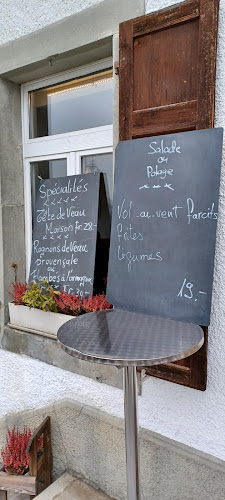 Spécialités
Tête de Veau
Maison fr. 28.-
Rognons de Veau
Provençale
ou
Flambés à l'armagnac
Salade
ou
Potage
Vol-au-vent garcis
frites
légumes
19.-